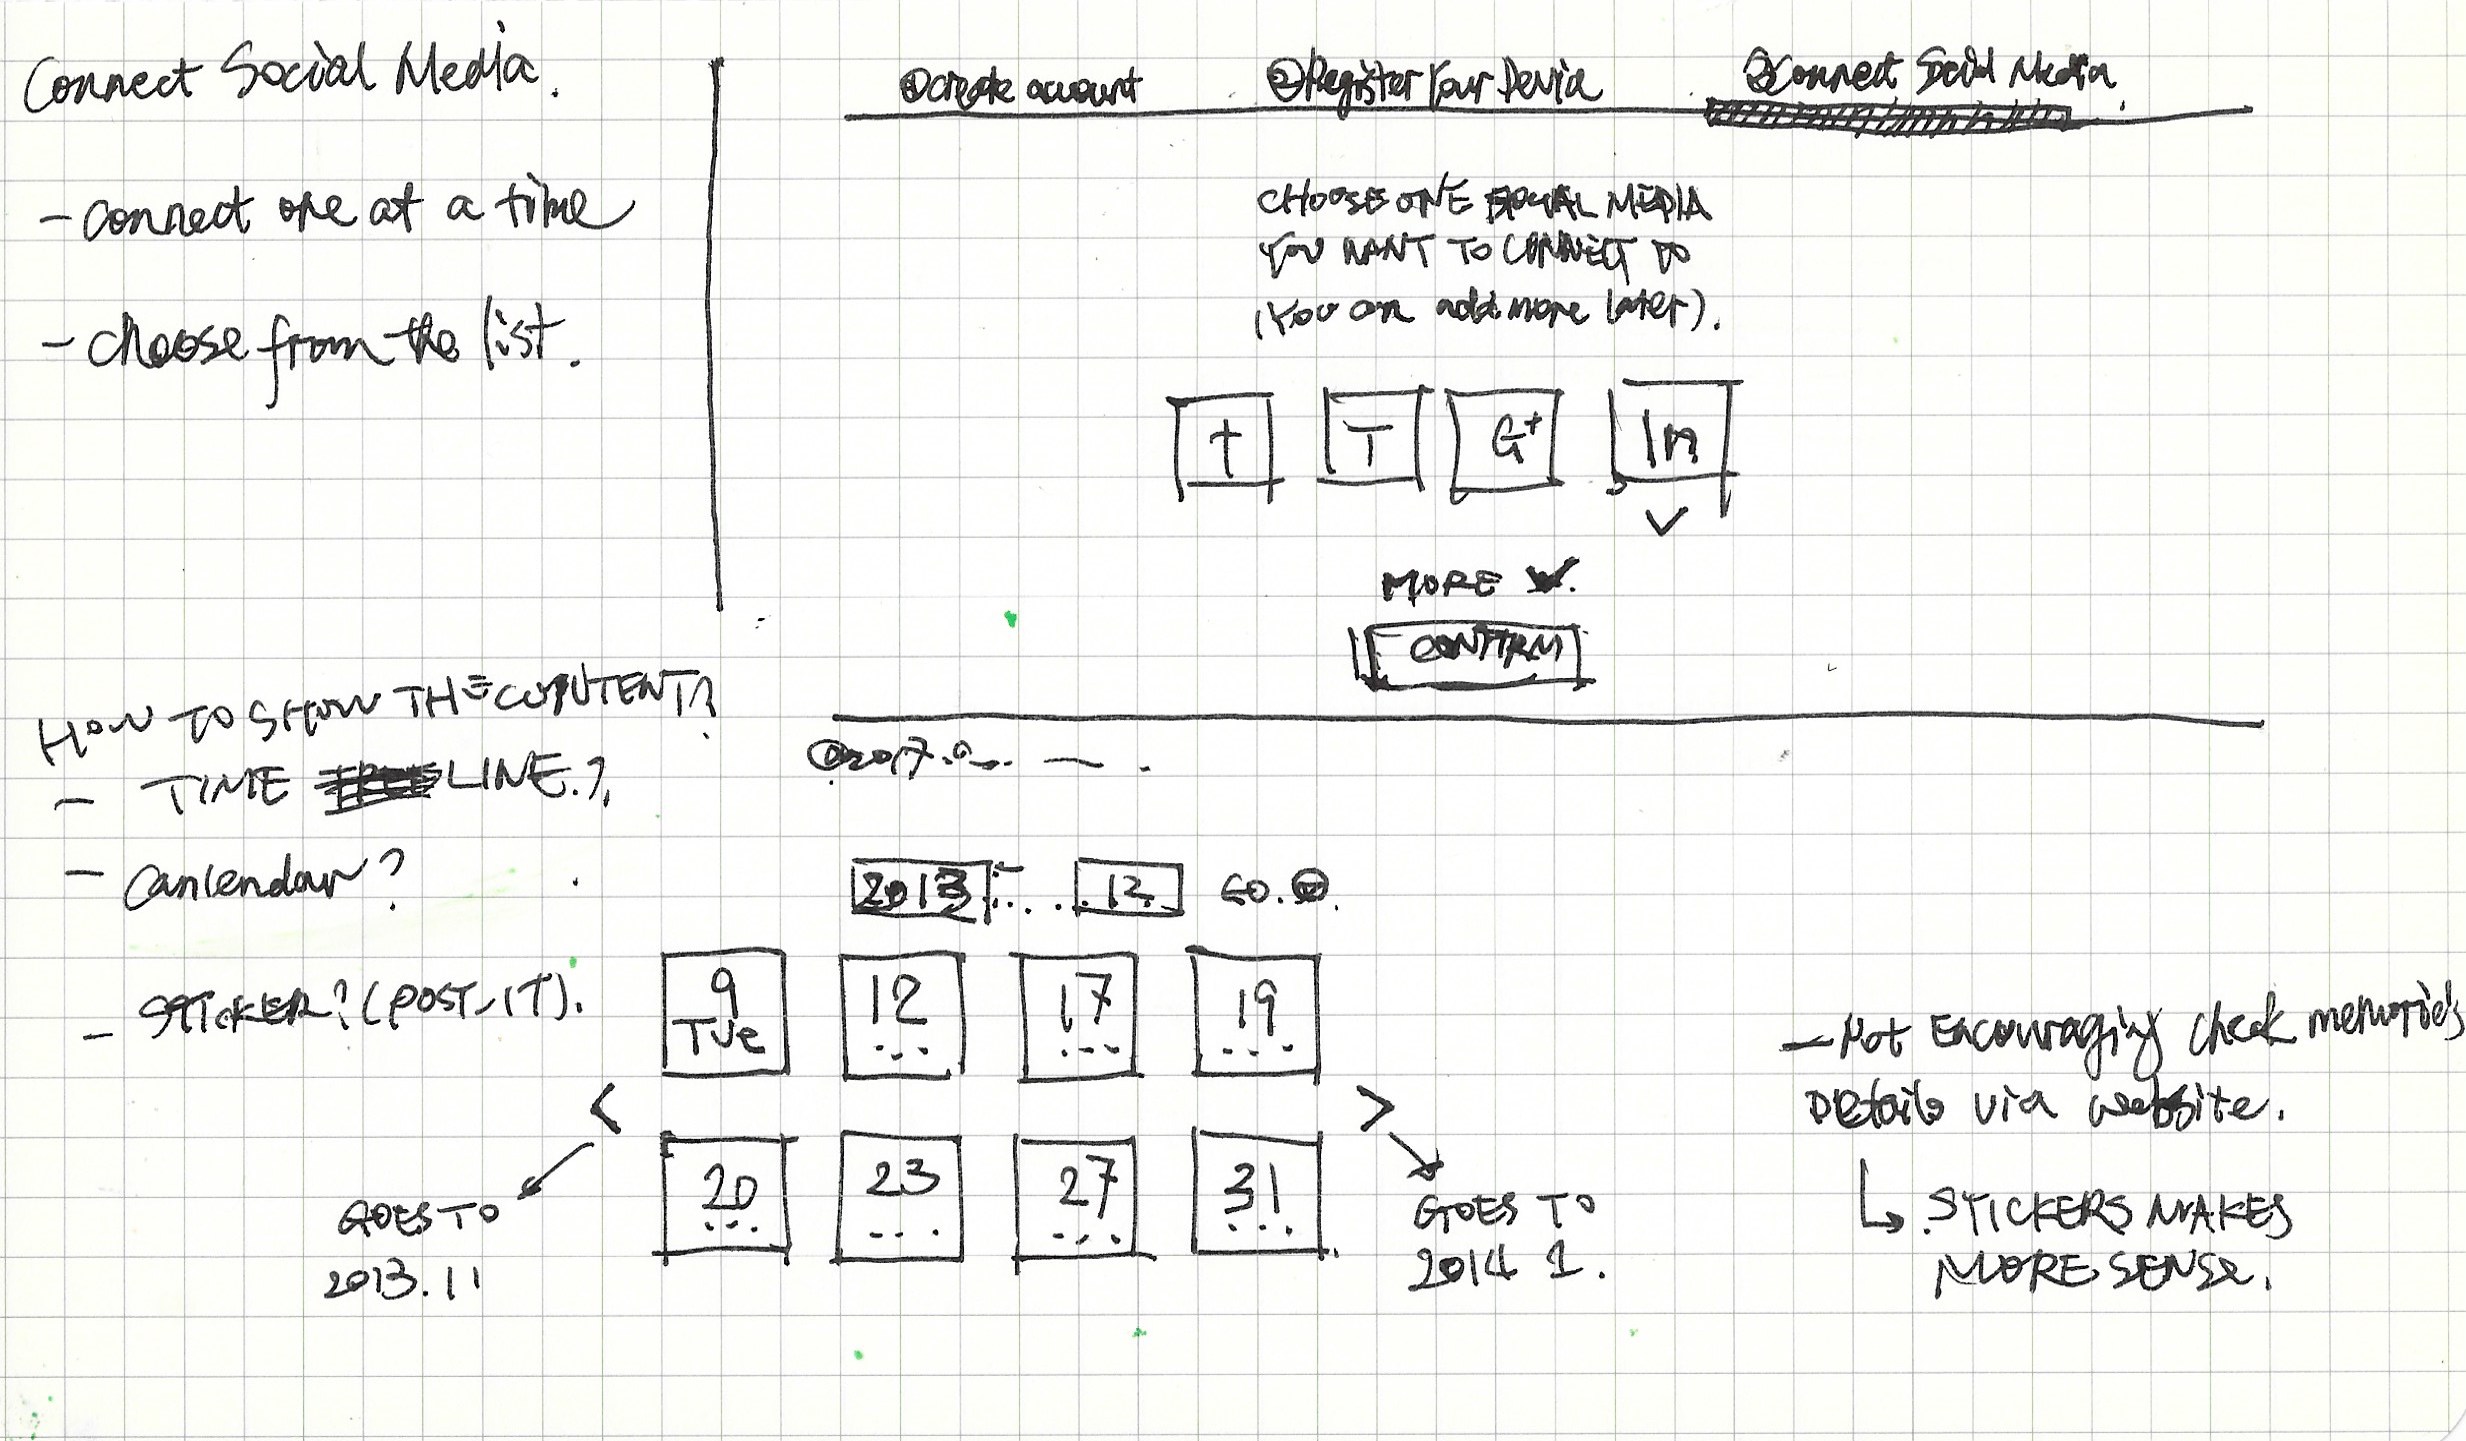 Connect Social Media.
- connect one at a time
- choose from the list.
①create account
②Register Your Device
③Connect Social Media.
CHOOSE ONE SOCIAL MEDIA
YOU WANT TO CONNECT TO
(You can add more later).
t T G+ In
MORE
CONFIRM
HOW TO SHOW THE CONTENT?
- TIME LINE?
- Canlendar?
- STICKER? (POST-IT).
2013 12 GO.
9 12 17 19
Tue ... ... ...
< >
20 23 27 31
... ... ... ...
GOES TO
2013.11
GOES TO
2014 1.
- Not Encouraging check memories
Details via website.
STICKERS MAKES
MORE SENSE.